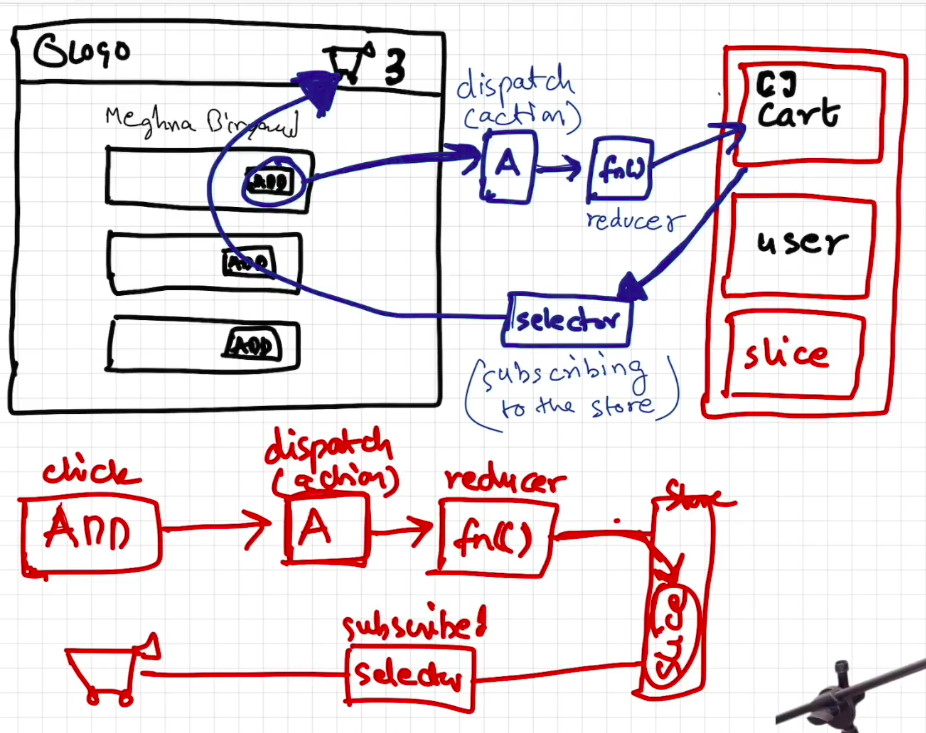 Logo
3
Meghna Biryani
ADD
ADD
ADD
dispatch
(action)
A
fn()
reducer
selector
(subscribing
to the store)
[]
cart
user
slice
click
ADD
dispatch
(action)
A
reducer
fn()
Store
slice
subscribed
selector